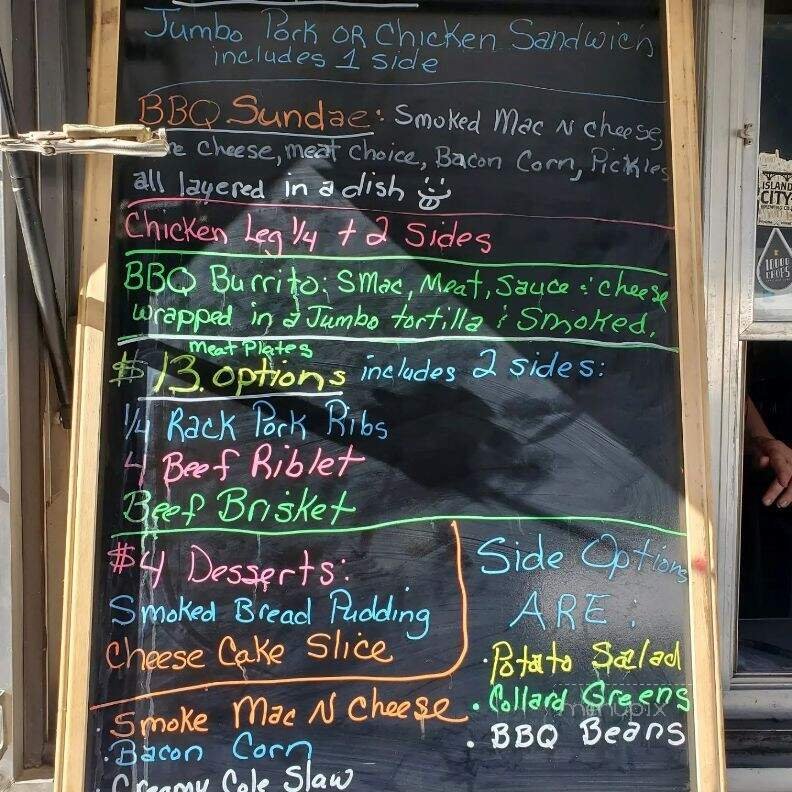 Jumbo Pork OR Chicken Sandwich
includes 1 side
BBQ Sundae: Smoked Mac N cheese,
cheese, meat choice, Bacon Corn, Pickles
all layered in a dish
Chicken Leg 1/4 + 2 Sides
BBQ Burrito: SMac, Meat, Sauce & cheese
wrapped in a Jumbo tortilla & Smoked.
Meat Plates
$13. options includes 2 sides:
1/4 Rack Pork Ribs
4 Beef Riblet
Beef Brisket
$4 Desserts:
Smoked Bread Pudding
Cheese Cake Slice
Side Options
ARE:
· Potato Salad
· Collard Greens
· BBQ Beans
· Smoke Mac N Cheese
· Bacon Corn
· Creamy Cole Slaw
menupix
ISLAND
CITY
BREWING CO
10000
DROPS